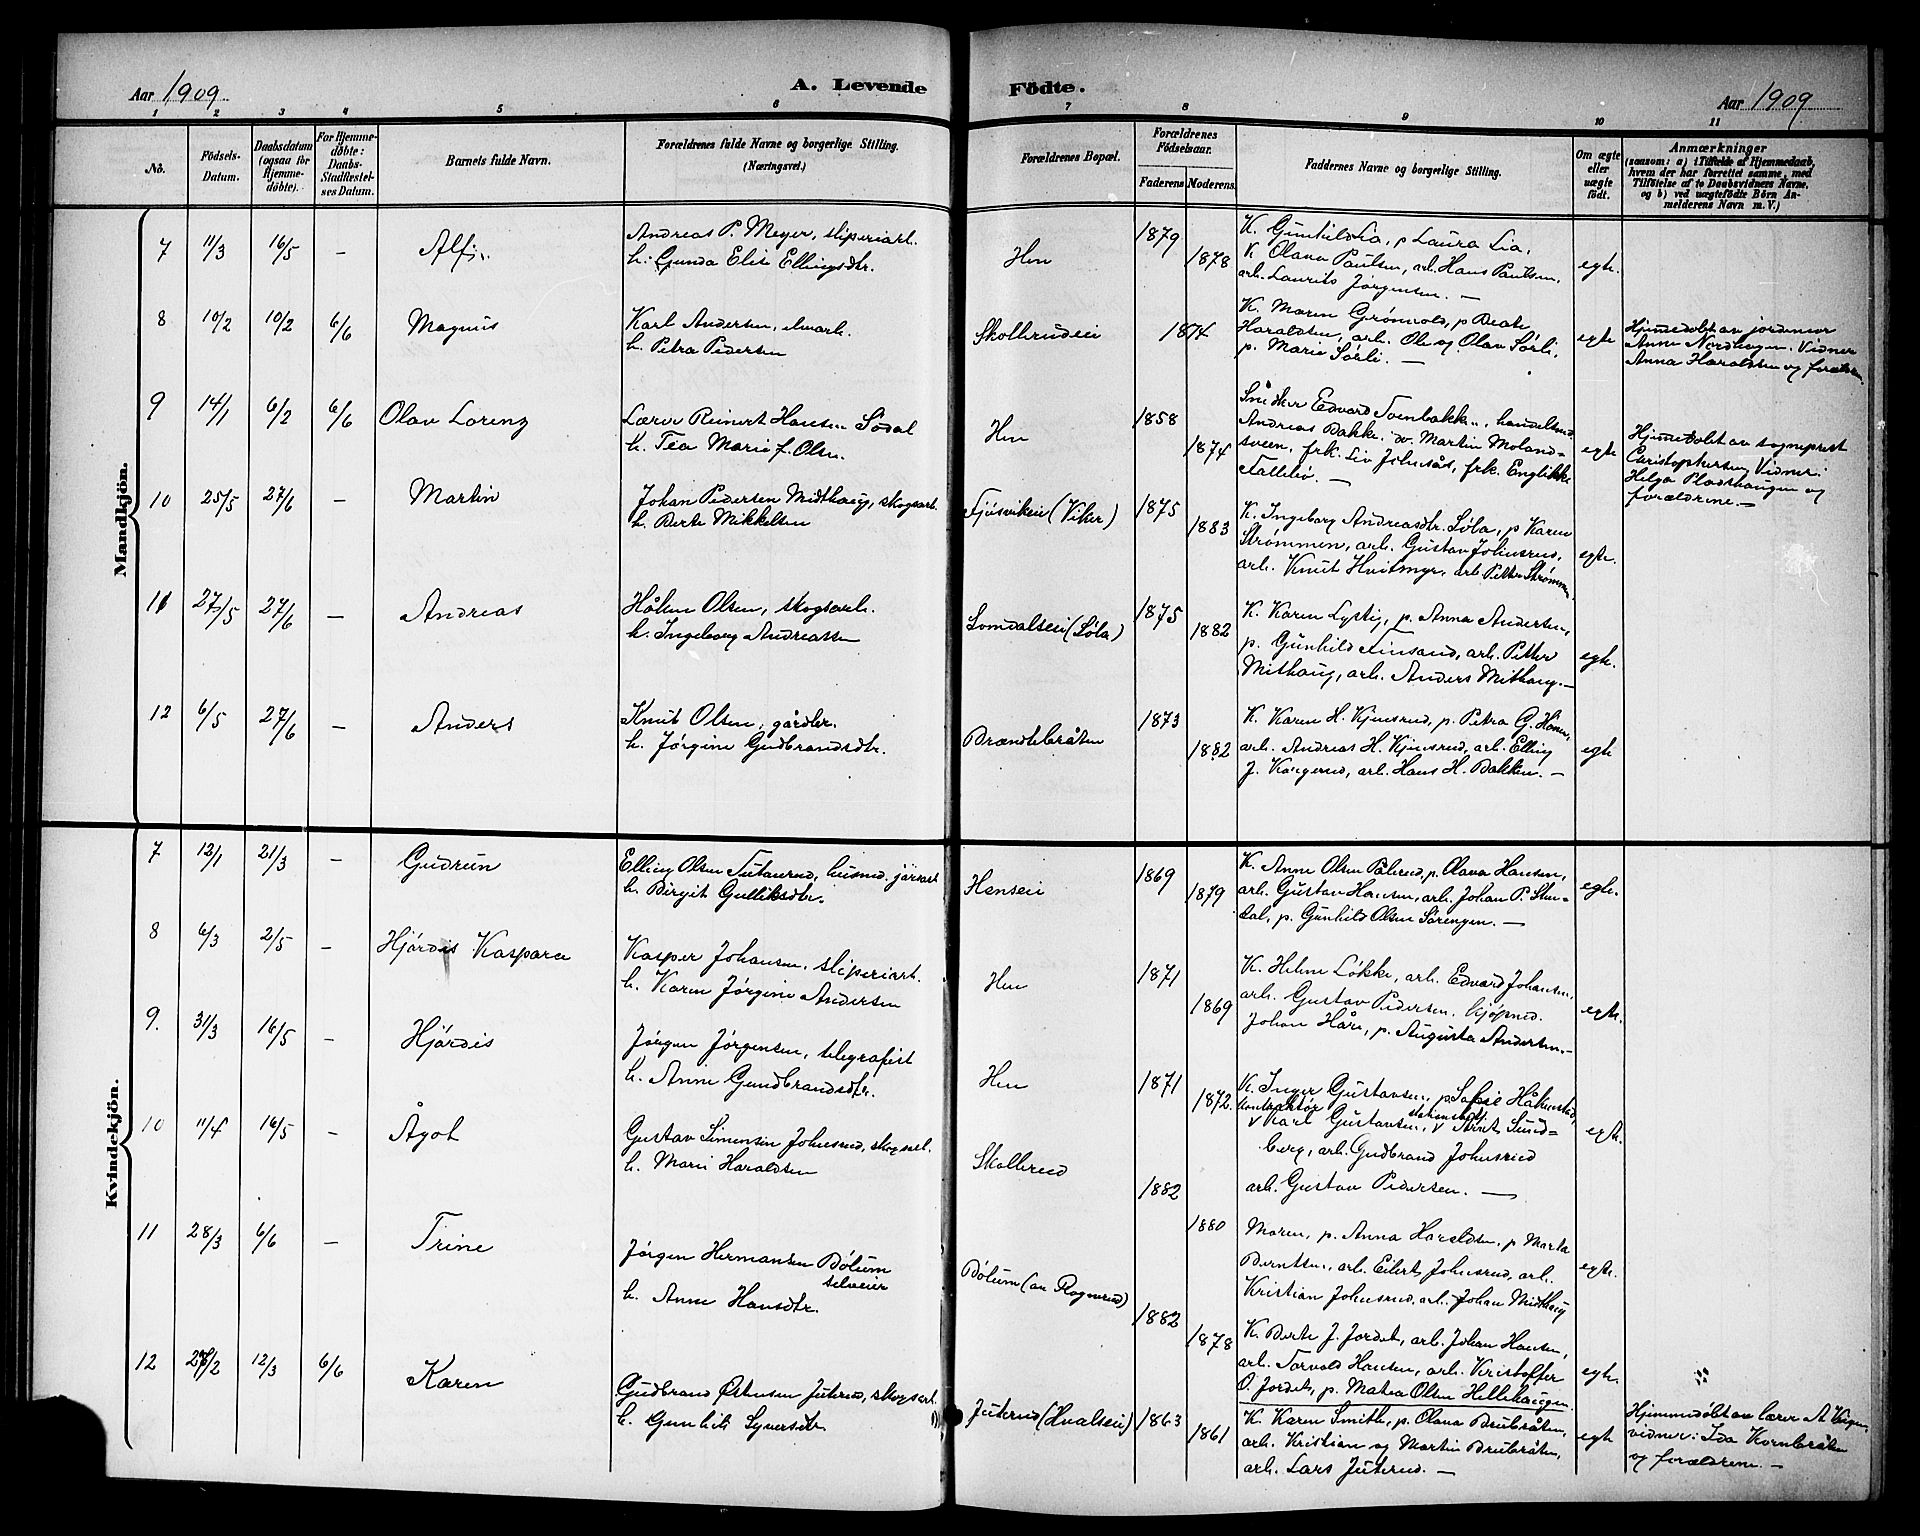 Aar 1909.
A. Levende
Födte.
Aar 1909
1 2 3 4 5 6 7 8 9 10 11
No.
Födsels-
Datum.
Daabsdatum
(ogsaa for
Hjemme-
döbte).
For Hjemme-
döbte:
Daabs-
Stadfestel-
ses Datum.
Barnets fulde Navn.
Forældrenes fulde Navne og borgerlige Stilling.
(Næringsvei.)
Forældrenes Bopæl.
Forældrenes
Födselsaar.
Faderens Moderens.
Faddernes Navne og borgerlige Stilling.
Om ægte
eller
uægte
födt.
Anmærkninger
(saasom: a) i Tilfælde af Hjemmedaab,
hvem der har forrettet samme, med
Tilföielse af to Daabsvidners Navne,
og b) ved uægtefödte Börn An-
melderens Navn m. V.)
Mandkjön.
7 11/3 16/5 — Alf
Andreas P. Meyer, sliperiarb.
h. Gunda Elise Ellingsdtr.
Hen
1879
1878
K. Gunhild Lia, p Laura Lia,
K Olava Paulsen, arb. Hans Paulsen,
arb. Laurits Jørgensen. —
egte.
8 10/2 10/2 6/6 Magnus
Karl Andersen, elvarb.
h. Petra Pedersen
Skollerudeie
1874
K. Maren Grønvold, p Beate
Haraldsen, arb. Ole og Olav Sørli,
p. Marie Sørli. —
egte
Hjemmedøbt av jordemor
Anne Nordhagen. Vidner
Anna Haraldsen og forældrene.
9 14/1 6/2 6/6 Olav Lorenz
Lærer Reinert Hansen Sødal
h. Tea Marie f. Olsen.
Hen
1858
1874
Snedker Edvard Svenbakken, handelsmd.
Andreas Bakke. do. Martin Moland-
sveen, frk. Liv Johnsås, frk. Englikke
Falleløv. —
egte
Hjemmedøbt av sogneprest
Christophersen, Vidner:
Helga Pladshaugen og
forældrene. —
10 25/5 27/6 — Martin
Johan Pedersen Midthaug, skogsarb.
h. Berte Mikkelsen
Fjøsvikeie (Viker)
1875
1883
K. Ingeborg Andreasdtr. Løla, p Karen
Strømmen, arb. Gustav Johnsrud,
arb. Knut Hvitmyr, arb Petter Strømmen
egte.
11 27/5 27/6 — Andreas
Håken Olsen, skogsarb.
h. Ingeborg Andreassen
Somdalseie (Løla)
1875
1882
K. Karen Lystig, p. Anna Andersen,
p. Gunhild Finsand, arb. Petter
Mithaug, arb. Anders Mithaug. —
egte.
12 6/5 27/6 — Anders
Knut Olsen, gårdbr.
h. Jørgine Gudbrandsdtr.
Brændebråten
1873
1882
K. Karen H. Kjinsrud, p. Petra G. Honen,
arb. Andreas H. Kjinsrud, arb. Elling
J. Kagerud, arb. Hans H. Bakken. —
egte
Kvindekjön.
7 12/1 21/3 — Gudrun
Elling Olsen Tutarud, husmd. jårsarb
h. Birgit Gulliksdtr.
Henseie
1869
1879
K. Anne Olsen Pålerud, p. Olava Hansen,
arb. Gustav Hansen, arb. Johan P. Sten-
dal, p. Gunhild Olsen Sørengen. —
egte.
8 6/3 2/5 — Hjørdis Kaspara
Kasper Johansen, sliperiarb.
h. Karen Jørgine Andersen
Hen
1871
1869
K. Helene Løkke, arb. Edvard Johansen,
arb. Gustav Pedersen, kjøpmd.
Johan Håre, p. Augusta Andersen. —
egte.
9. 31/3 16/5 — Hjørdis
Jørgen Jørgensen, telegrafist
h. Anne Gundbrandsdtr.
Hen
1871
1872.
K. Inger Gustavsen, p Sofie Håkenstad,
kontraktør
v Karl Gustavsen, v Arnt Sund-
berg, arb. Gudbrand Johnsrud
arb. Gustav Pedersen. —
egte.
10 11/4 16/5 — Ågot
Gustav Simensen Johnsrud, skogsarb.
h. Marie Haraldsen
Skollerud
1882
1880
Moren, p. Anna Haraldsen, p Marta
Berntsen, arb. Eilert Johnsrud, arb.
Kristian Johnsrud, arb. Johan Midthaug
egte.
11 28/3 6/6 — Trine
Jørgen Hermansen Bölum
selveier
h. Anne Hansdtr.
Bölum (av Rognerud)
1882
1878
K. Berte J. Jordet, arb. Johan Hansen,
arb. Torvald Hansen, arb. Kristoffer
O. Jordet, p. Matea Olsen Hellehaugen.
egte.
12 26/2 12/3 6/6 Karen
Gudbrand Østensen Juterud, skogsarb.
h. Gunhild Syversdtr.
Juterud (Hvalseie)
1863
1861
K. Karen Smith, p. Olava Brubråten,
arb. Kristian og Martin Brubråten,
arb. Lars Juterud. —
egte
Hjemmedøbt av lærer
vidner: Ida Kornbråten
og forældrene. —